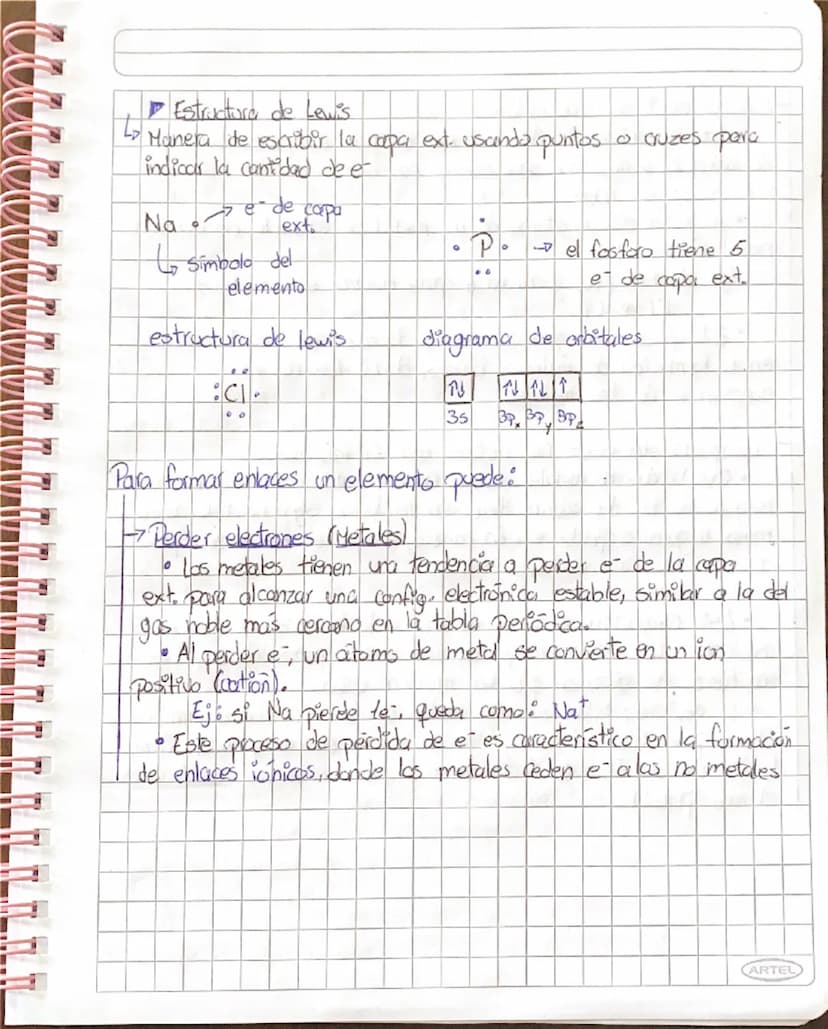 Estructura de Lewis
↳ Manera de escribir la capa ext. usando puntos o cruzes para
indicar la cantidad de e⁻
Na • → e⁻ de capa
ext.
↳ Símbolo del
elemento
P → el fosforo tiene 5
e⁻ de capa ext.
estructura de lewis
diagrama de orbitales
:Cl.
↑↓ ↑↓ ↑↓ ↑
3s 3pₓ 3pᵧ 3p_z
Para formar enlaces un elemento puede:
→ Perder electrones (Metales)
• Los metales tienen una tendencia a perder e⁻ de la capa
ext. para alcanzar una config. electrónica estable, similar a la del
gas noble más cercano en la tabla periódica.
• Al perder e⁻, un átomo de metal se convierte en un ion
positivo (catión).
Ej: si Na pierde 1e⁻, queda como: Na⁺
• Este proceso de pérdida de e⁻ es característico en la formación
de enlaces iónicos, donde los metales ceden e⁻ a las no metales
ARTEL